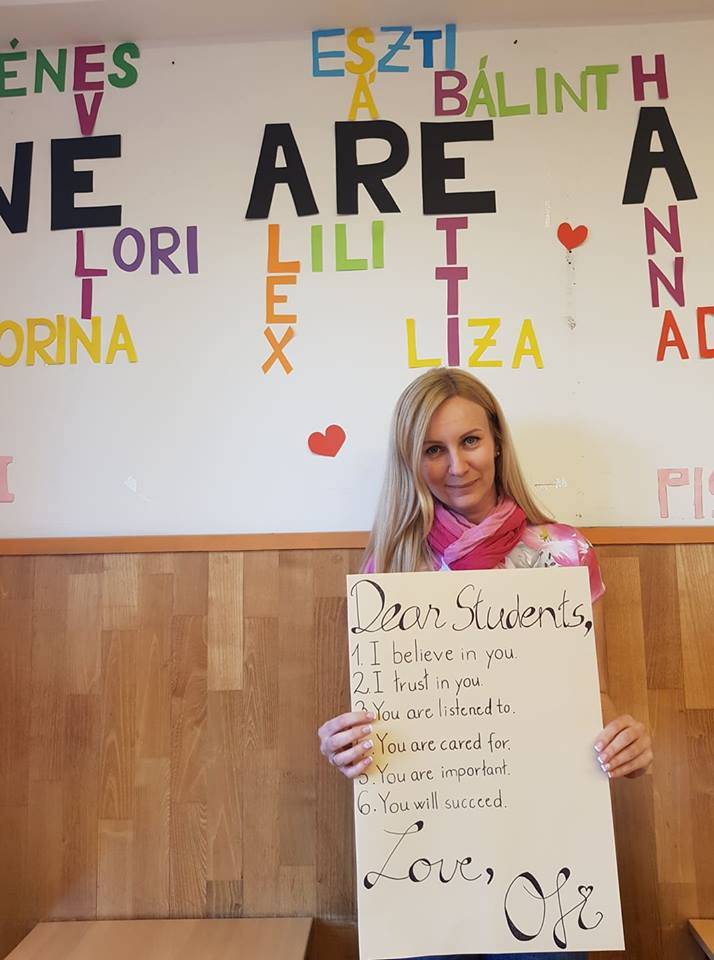 ÉNES
ESZTI
BÁLINT
E ARE A
LORI
LILI
ORINA
LIZA
AD
PIS
EVELI
SÁR
ALEX
BETTI
HANNA
Dear Students,
1. I believe in you.
2. I trust in you.
3. You are listened to.
You are cared for.
5. You are important.
6. You will succeed.
Love,
Ofi